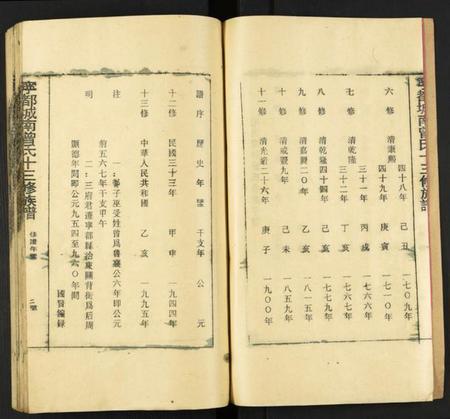 六修 清康熙 四十八年 己丑 一七〇九年
四十九年 庚寅 一七一〇年
七修 清乾隆 三十一年 丙戌 一七六六年
三十二年 丁亥 一七六七年
八修 清乾隆四十四年 己亥 一七七九年
九修 清嘉慶二十年 乙亥 一八一五年
十修 清咸豐九年 己未 一八五九年
十一修 清光緒二十六年 庚子 一九〇〇年
寧都城南曾氏十三修族譜
譜序 歷史年 干支年 公元
十二修 民國三十三年 甲申 一九四四年
十三修 中華人民共和國 乙亥 一九九五年
注 一:鄫子巫受姓曾爲魯襄公六年即公元
前五六七年干支甲午
明 二:三府君遷寧都縣治 背街爲后周
顯德年間即公元九五四至九六〇年間
國賢編錄
寧都城南曾氏十三修族譜
修譜年
二